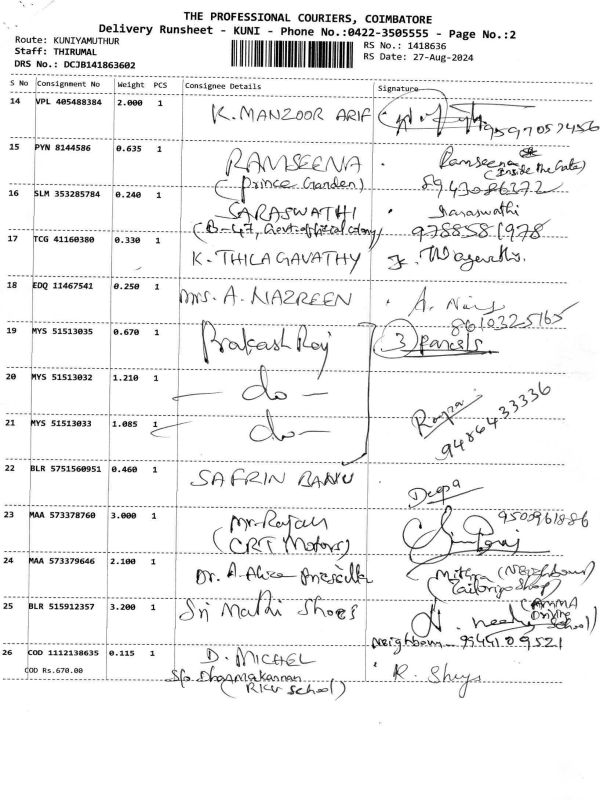 THE PROFESSIONAL COURIERS, COIMBATORE
Delivery Runsheet - KUNI - Phone No.:0422-3505555 - Page No.:2
Route: KUNIYAMUTHUR
Staff: THIRUMAL
DRS No.: DCJB141863602
RS No.: 1418636
RS Date: 27-Aug-2024
S No Consignment No Weight PCS Consignee Details Signature
14 VPL 405488384 2.000 1 K. MANZOOR ARIF
9597057456
15 PYN 8144586 0.635 1 RAMSEENA Ramseena
(Prince Garden) (Inside the Gate)
8943086372
16 SLM 353285784 0.240 1 SARASWATHI Saraswathi
(B-47, Govt official colony) 9788581978
17 TCG 41160380 0.330 1 K. THILAGAVATHY
18 EDQ 11467541 0.250 1 Mrs. A. NAZREEN A.
8610325165
19 MYS 51513035 0.670 1 Prakash Raj 3 Parcels
20 MYS 51513032 1.210 1 - do -
21 MYS 51513033 1.085 1 - do -
9486433336
22 BLR 5751560951 0.460 1 SAFRIN BANU Deepa
23 MAA 573378760 3.000 1 Mr. Rajan
(CRT Motors)
24 MAA 573379646 2.100 1 Dr. A. Priscilla Mithra (Neighbour)
(Tailoring Shop)
25 BLR 515912357 3.200 1 Sri Mathi Shoes
(AMMA Driving School)
Neighbour - 9344109521
26 COD 1112138635 0.115 1 D. MICHEL R.
COD Rs.670.00 S/o. Dharmakannan
(RKV School)